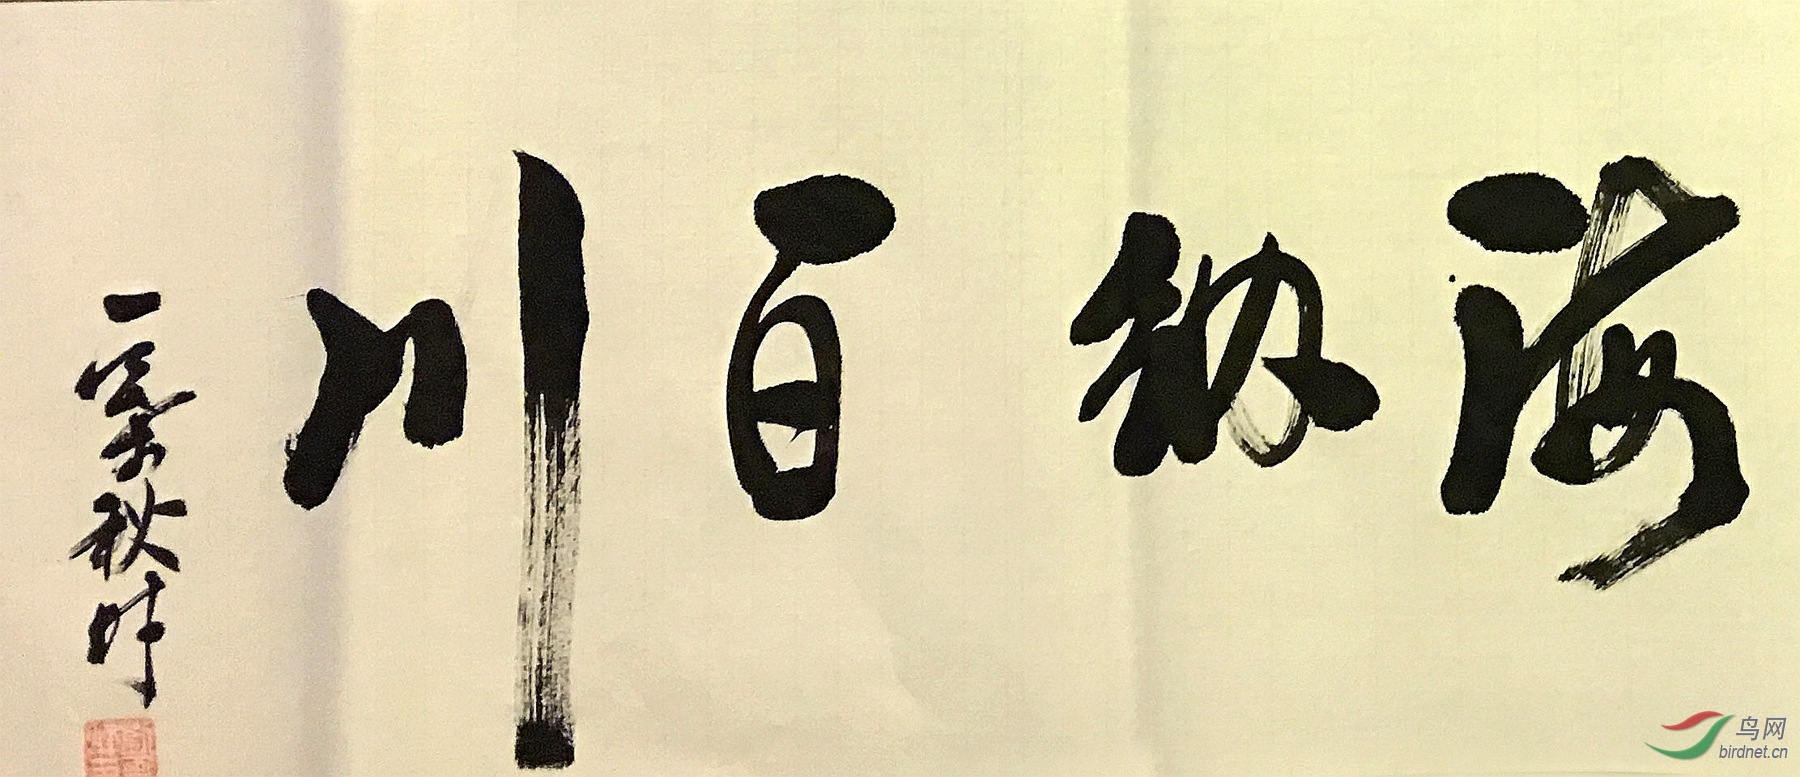 海纳百川
一秋
鸟网
birdnet.cn